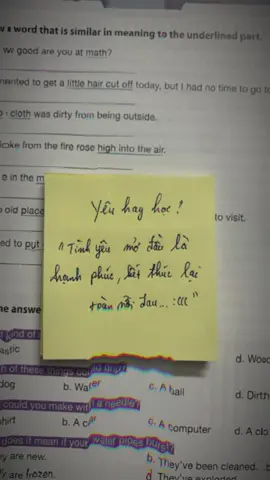 w a word that is similar in meaning to the underlined part.
w good are you at math?
wanted to get a little hair cut off today, but I had no time to go to
cloth was dirty from being outside.
moke from the fire rose high into the air.
e in the m
e old place
to visit.
ed to put
Yêu hay học!
"Tình yêu mở đầu là
hạnh phúc, kết thúc lại
toàn nỗi đau... :((("
he answe
kind of
astic
d. Wood
h of these things
dog
b. Water
c. A ball
d. Dirt
could you make with a needle?
shirt
b. A car
c. A computer
d. A clo
does it mean if your water pipes burst?
ey are new.
b. They've been cleaned.
ey are frozen.
d. They've exploded.